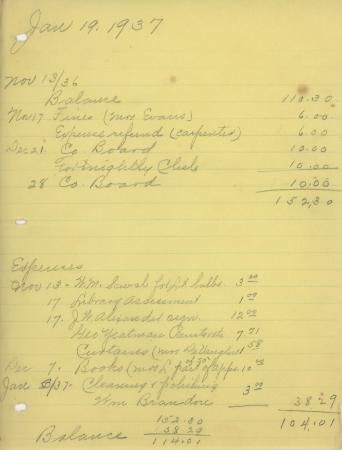 Jan 19. 1937
Nov 13/36
Balance 110.30
Nov 17 Fines (mrs Evans) 6.00
Expense refund (carpenter) 6.00
Dec 21 Co Board 10.00
Fortnightly Club 10.00
28 Co. Board 10.00
152,30
Expenses
Nov 13 - W.M. light bulbs. 3.00
17 Library Assessment 1.00
17. J.W. Alexander sign. 12.00
Geo Yeatman 7.71
Curtains (mrs 1.58
Dec 7. Books (mrs L part of appr. 10.00
Jan 37. Cleaning & polishing
Wm Brandon 3.00 38 29
104.01
152.30
38 29
Balance 114.01